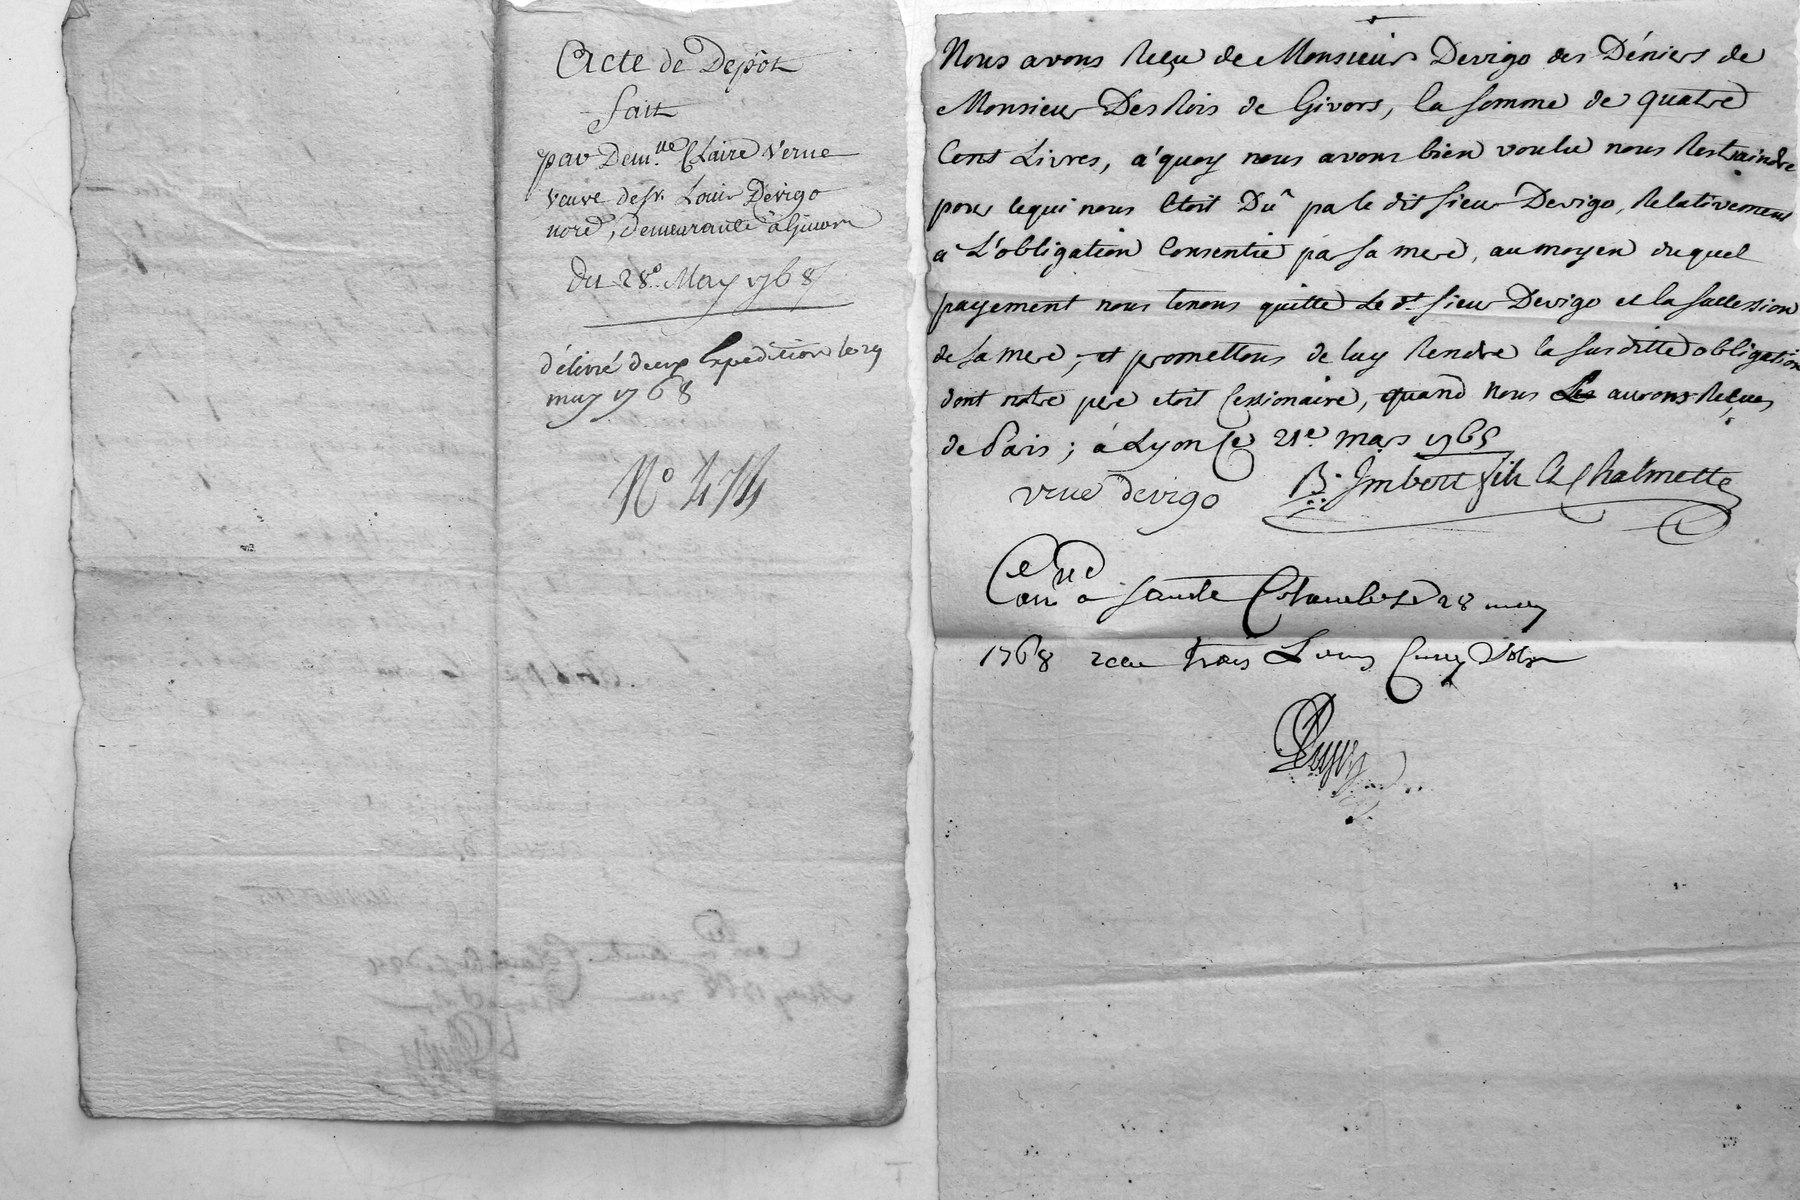 Acte de Depôt
fait
par Dem.lle Claire Verne
veuve de sr. Louis Devigo
nore, demeurante à Givors
Du 28e May 1768
délivré deux Expeditions le 29
may 1768
N° 474
Nous avons Reçu de Monsieur Devigo des Déniers de
Monsieur DesRois de Givors, la somme de quatre
Cent Livres, a'quoy nous avons bien voulu nous Restraindre
pour cequi nous Etoit Dû par le dit sieur Devigo, Relativement
a L'obligation Consentie par sa mere, au moyen duquel
payement nous tenons quitte Le dt. sieur Devigo et la succession
de sa mere, et promettons de luy Rendre la susditte obligation
dont notre pere etoit Cessionaire, quand nous Les aurons Reçues
de Paris; á Lyon Ce 21e mars 1765
verne devigo B. Imbert fils Chalmette
Con.lé a sainte Colombe le 28 may
1768 reçu trois Livres